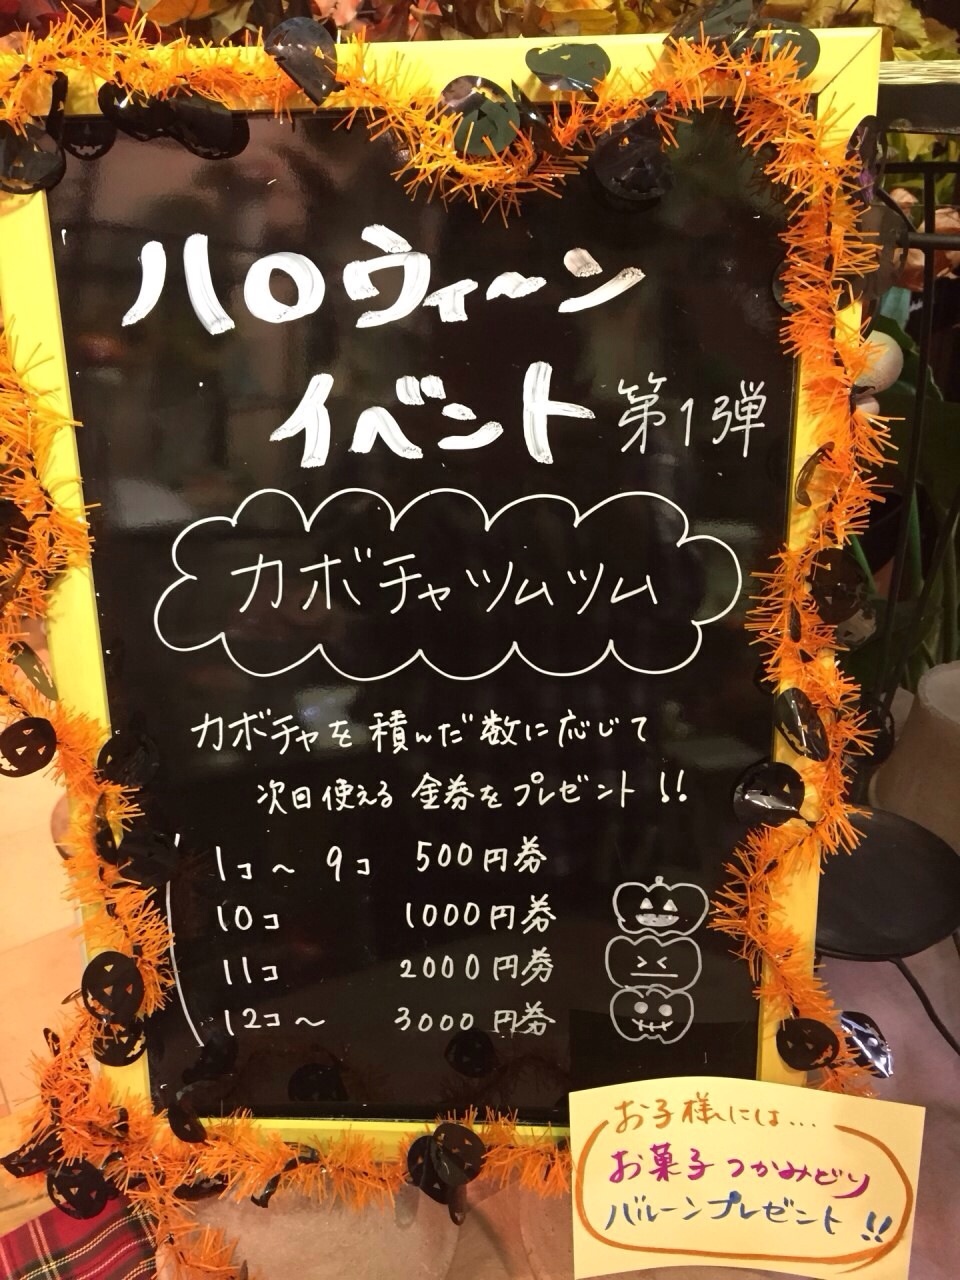 ハロウィーン
イベント 第1弾
カボチャツムツム
カボチャを積んだ数に応じて
次回使える 金券をプレゼント!!
1コ~9コ 500円券
10コ 1000円券
11コ 2000円券
12コ~ 3000円券
お子様には...
お菓子つかみどり
バルーンプレゼント!!